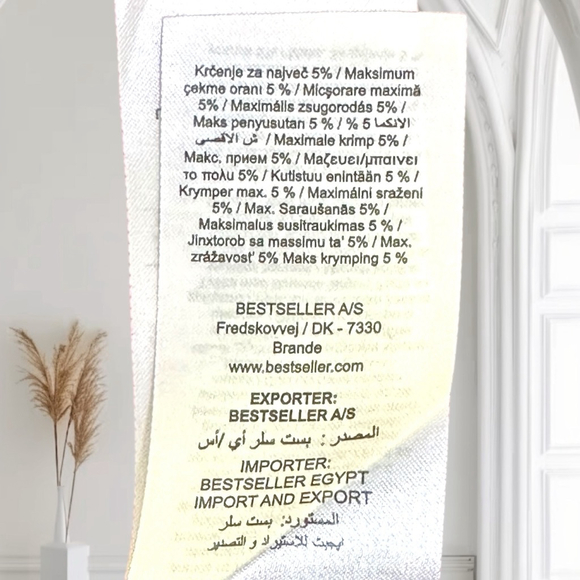 Krčenje za največ 5% / Maksimum
çekme oranı 5 % / Micşorare maximă
5% / Maximális zsugorodás 5% /
Maks penyusutan 5 % / % 5 الانكما
ش الاقصى / Maximale krimp 5% /
Макс. прием 5% / Μαζευει/μπαινει
το πολυ 5% / Kutistuu enintään 5 % /
Krymper max. 5 % / Maximální sražení
5% / Max. Saraušanās 5% /
Maksimalus susitraukimas 5 % /
Jinxtorob sa massimu ta' 5% / Max.
zrážavosť 5% Maks krymping 5 %
BESTSELLER A/S
Fredskovvej / DK - 7330
Brande
www.bestseller.com
EXPORTER:
BESTSELLER A/S
المصدر : بست سلر أي /أس
IMPORTER:
BESTSELLER EGYPT
IMPORT AND EXPORT
المستورد: بست سلر
ايجبت للاستيراد و التصدير